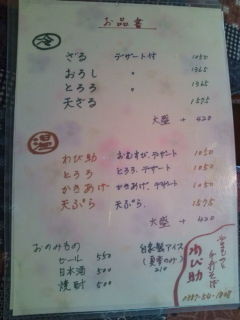 お品書
冷
ざる デザート付 1050
おろし 〃 1365
とろろ 〃 1365
天ざる 1575
大盛 + 420
温
わび助 おむすび、デザート 1050
とろろ とろろ、デザート 1050
かきあげ かきあげ、デザート 1050
天ぷら 天ぷら、 1575
大盛 + 420
おのみもの
ビール 550
日本酒 500
焼酎 500
自家製アイス
(夏季のみ)
210
手打そば
わび助